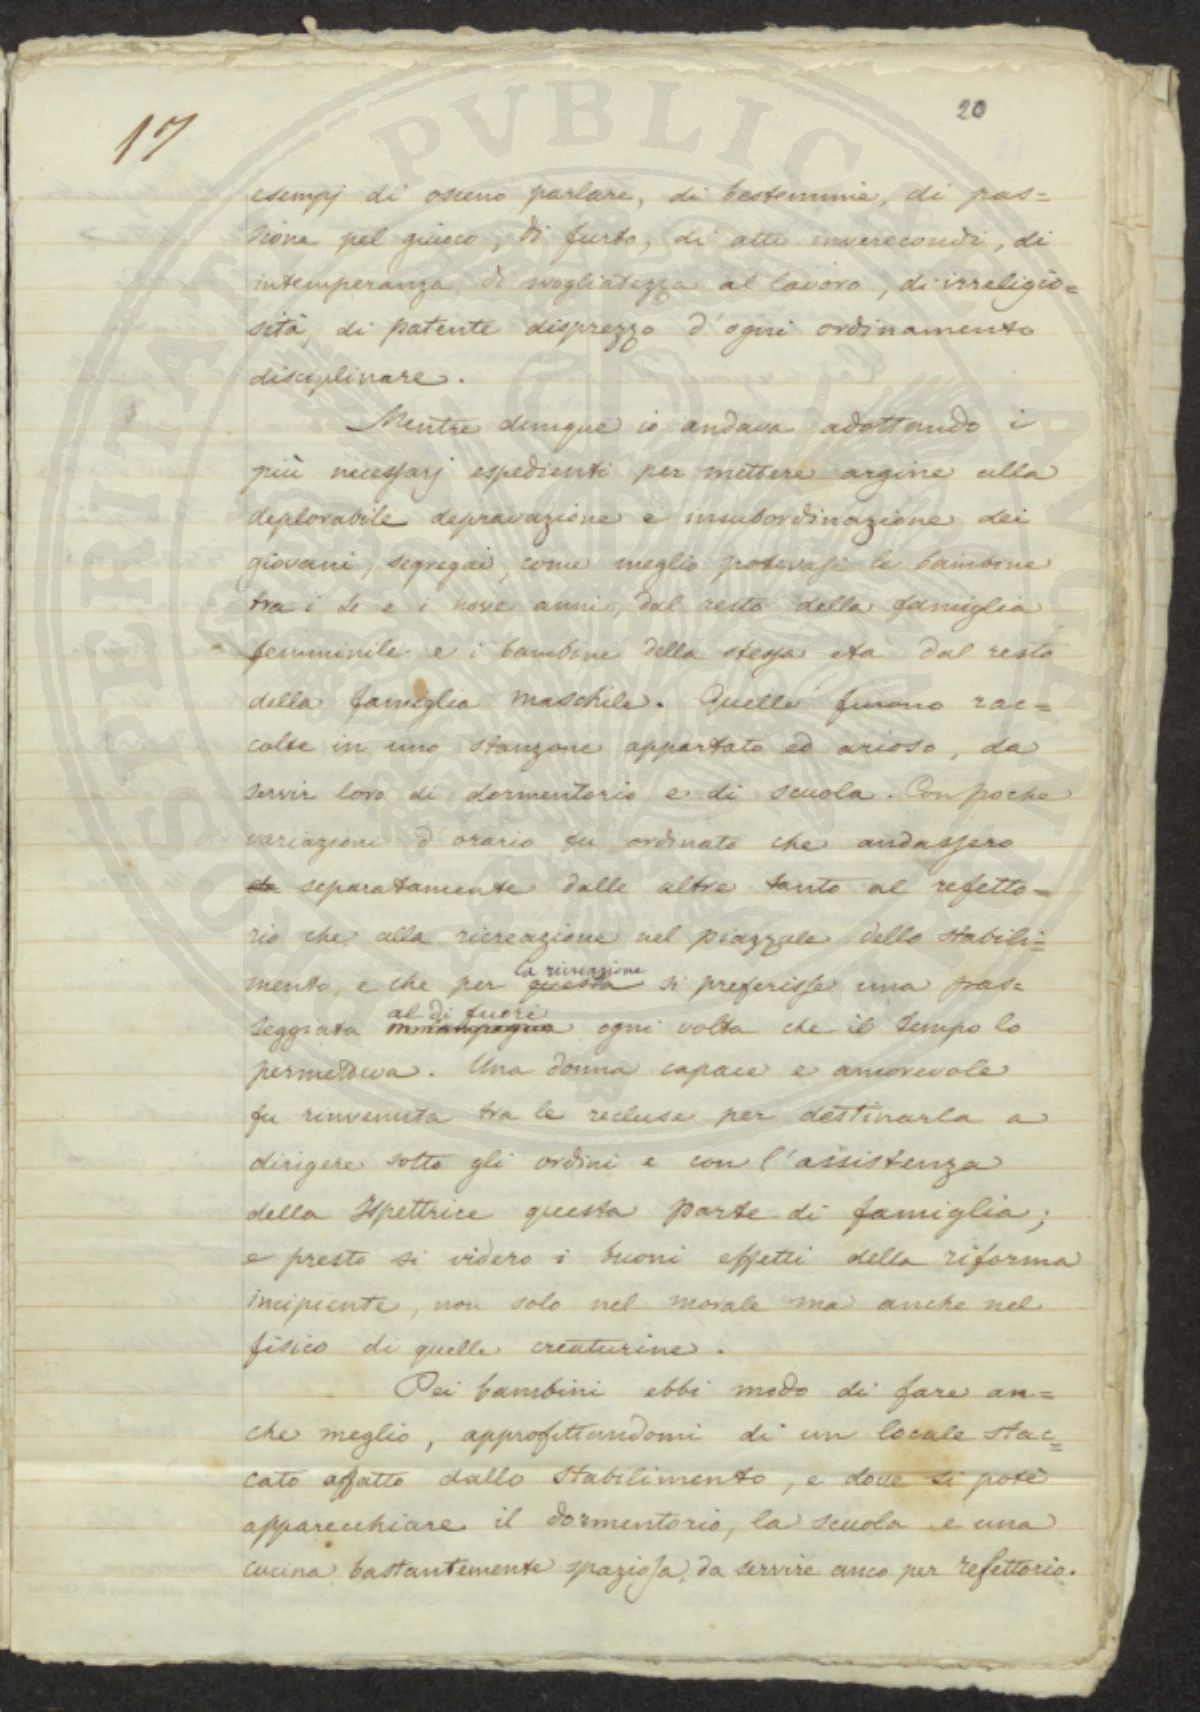 17
20
esempj di osceno parlare, di bestemmie, di pas=
sione pel giuoco, di furto, di atti inverecondi, di
intemperanza, di svogliatezza al lavoro, di irreligio=
sità, di patente disprezzo d'ogni ordinamento
disciplinare.
Mentre dunque io andava adottando i
più necessarj espedienti per mettere argine alla
deplorabile depravazione e insubordinazione dei
giovani, segregai, come meglio potevasi le bambine
tra i 2 e i nove anni, dal resto della famiglia
femminile e i bambini della stessa età dal resto
della famiglia maschile. Quelle furono rac=
colte in uno stanzone appartato ed arioso, da
servir loro di dormentorio e di scuola. Con poche
variazioni d'orario fu ordinato che andassero
separatamente dalle altre tanto al refetto=
rio che alla ricreazione nel piazzale dello stabili=
la ricreazione
mento, e che per questa si preferisse una pas=
al di fuori
seggiata in campagna ogni volta che il tempo lo
permetteva. Una donna capace e amorevole
fu rinvenuta tra le recluse per destinarla a
dirigere sotto gli ordini e con l'assistenza
della Ispettrice questa parte di famiglia;
e presto si videro i buoni effetti della riforma
incipiente, non solo nel morale ma anche nel
fisico di quelle creaturine.
Pei bambini ebbi modo di fare an=
che meglio, approfittandomi di un locale stac=
cato affatto dallo Stabilimento, e dove si potè
apparecchiare il dormentorio, la scuola e una
cucina bastantemente spaziosa, da servire anco per refettorio.